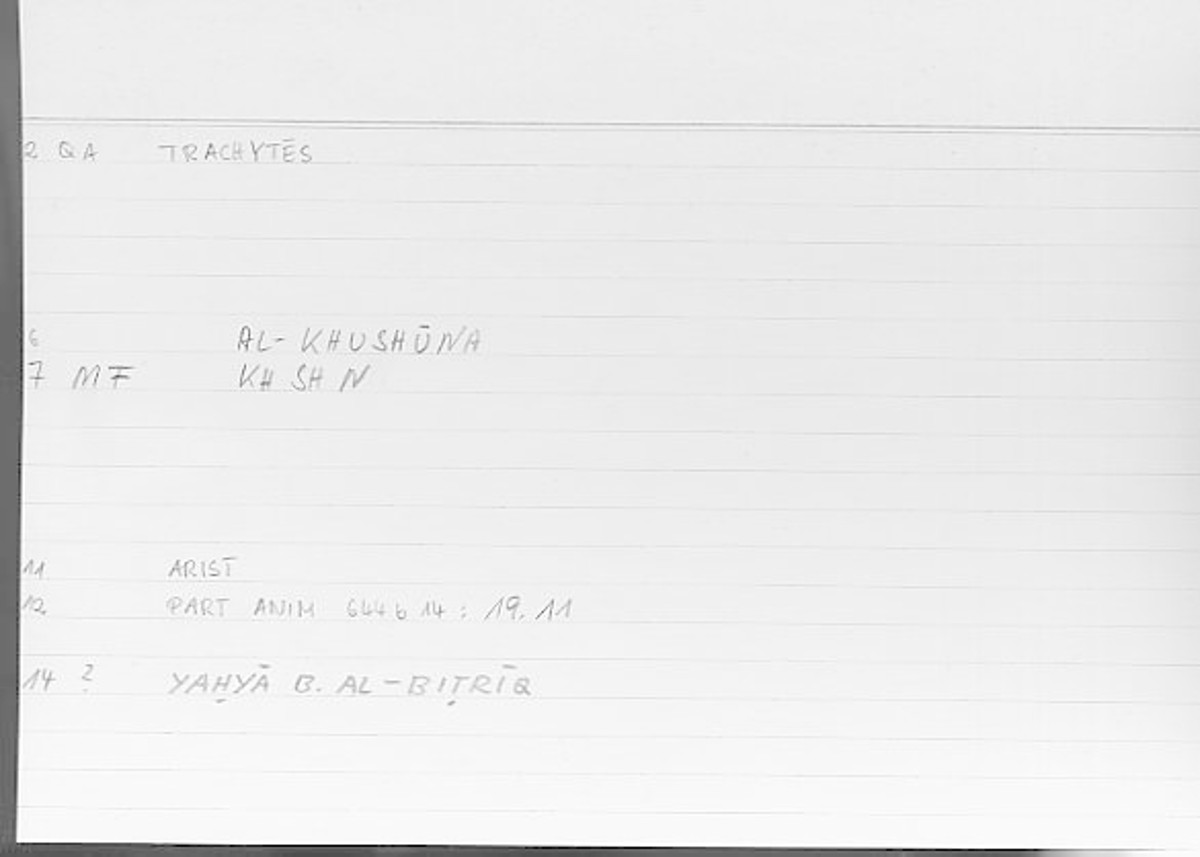 2 QA TRACHYTĒS
6 AL-KHUSHŪNA
7 MF KH SH N
11 ARIST
12 PART ANIM 644 b 14 : 19, 11
14 ? YAḤYĀ B. AL-BIṬRĪQ